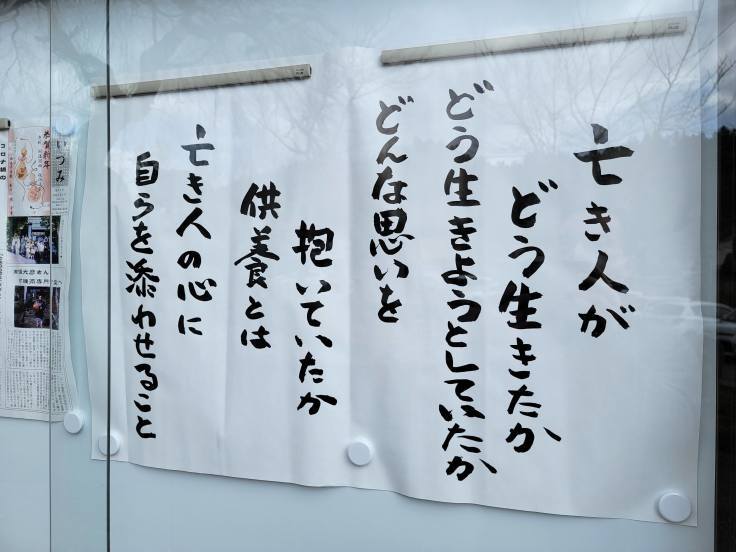 亡き人が
どう生きたか
どう生きようとしていたか
どんな思いを
抱いていたか
供養とは
亡き人の心に
自らを添わせること
いつみ
恭賀新年
コロナ禍の